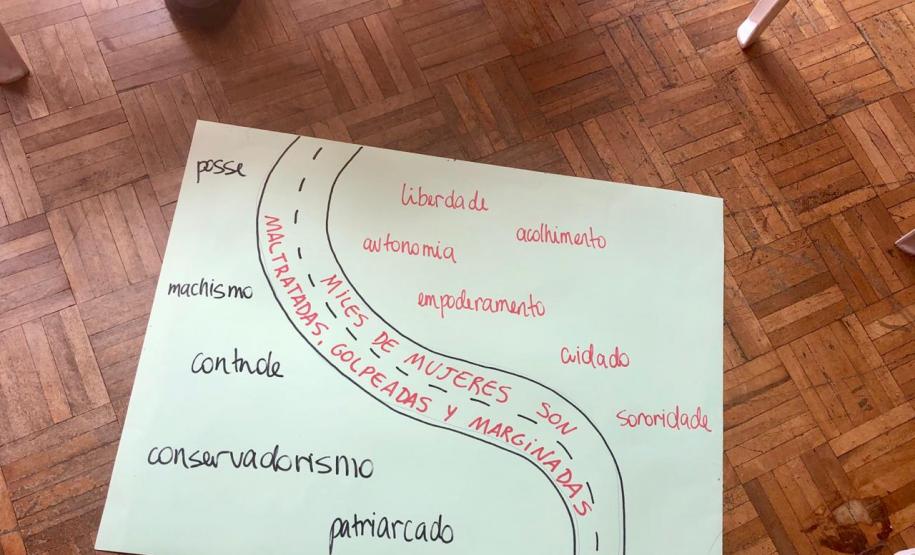 posse
liberdade
acolhimento
autonomia
machismo
empoderamento
MILES DE MUJERES SON
MALTRATADAS, GOLPEADAS Y MARGINADAS
controle
cuidado
sororidade
conservadorismo
patriarcado